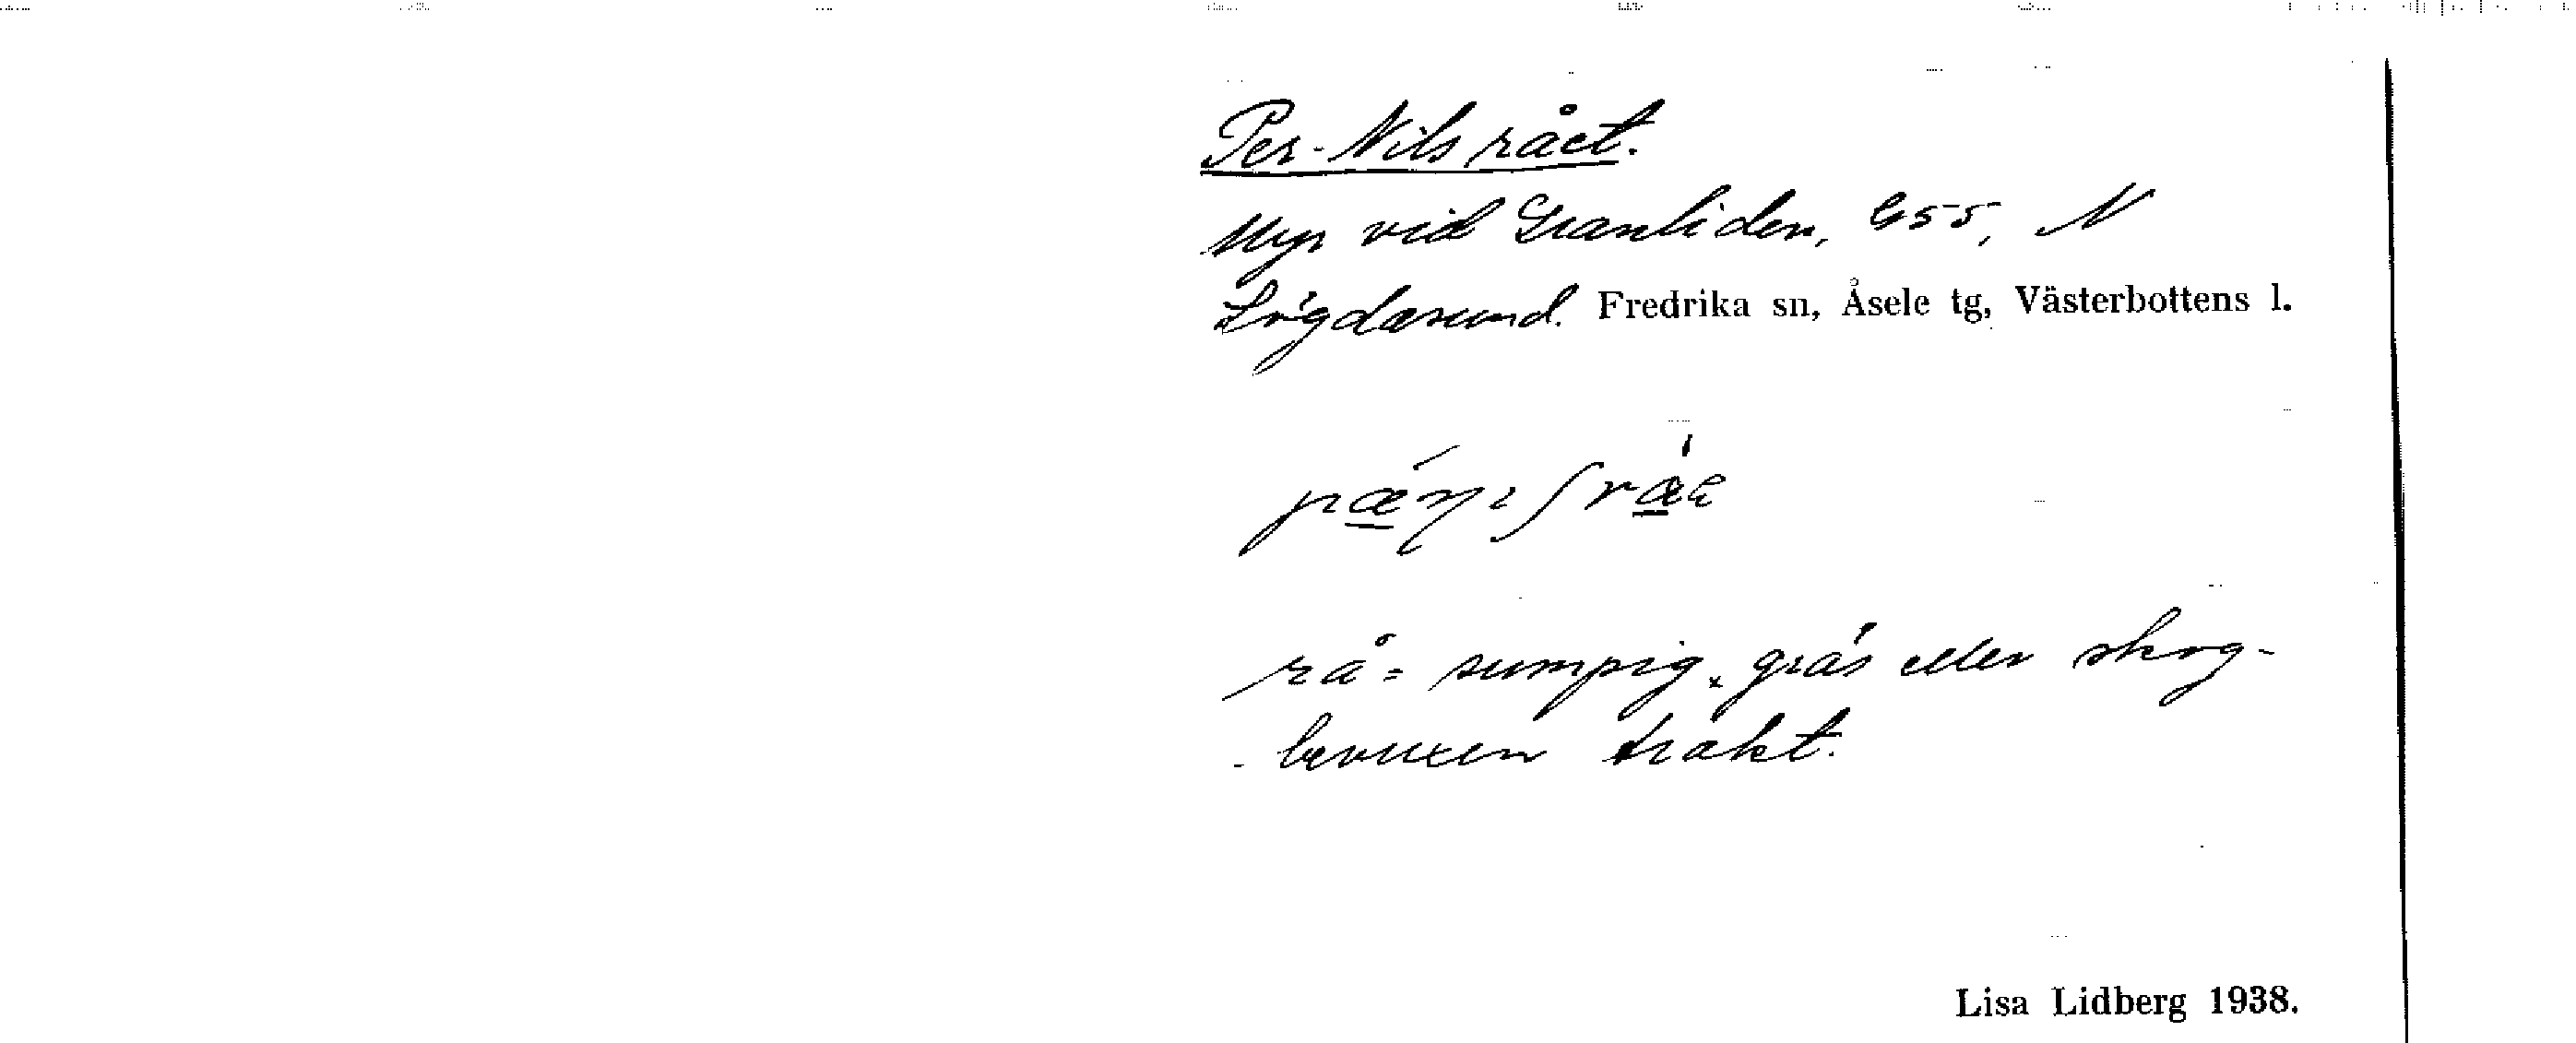 Per-Nils rået.
Myr vid Granliden, G55, N
Lögdasund. Fredrika sn, Åsele tg, Västerbottens l.
rå = sumpig, gräs eller skog-
bevuxen trakt.
Lisa Lidberg 1938.